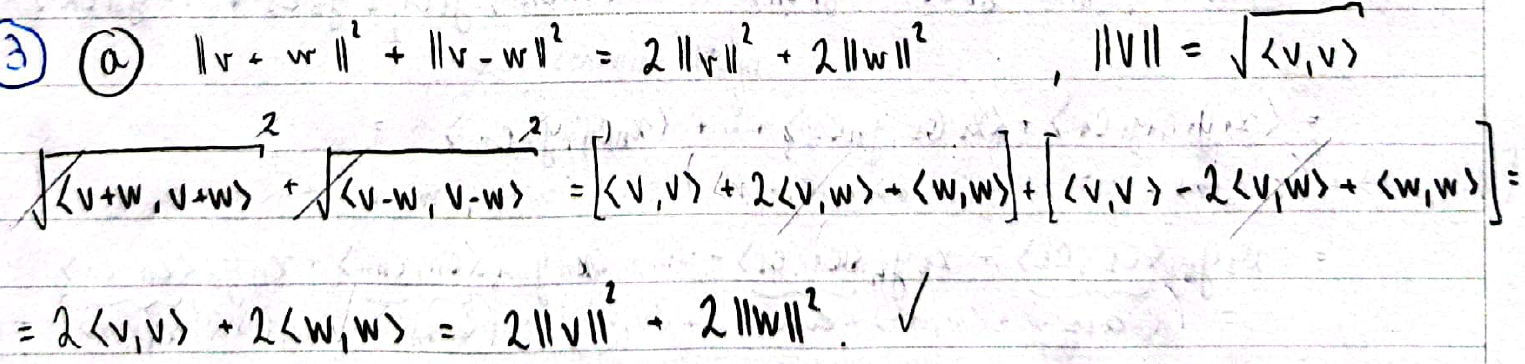 3) (a) ||v + w||² + ||v - w||² = 2||v||² + 2||w||² , ||v|| = √<v,v>
√<v+w, v+w>² + √<v-w, v-w>² = [<v,v> + 2<v,w> + <w,w>] + [<v,v> - 2<v,w> + <w,w>] =
= 2<v,v> + 2<w,w> = 2||v||² + 2||w||². ✓